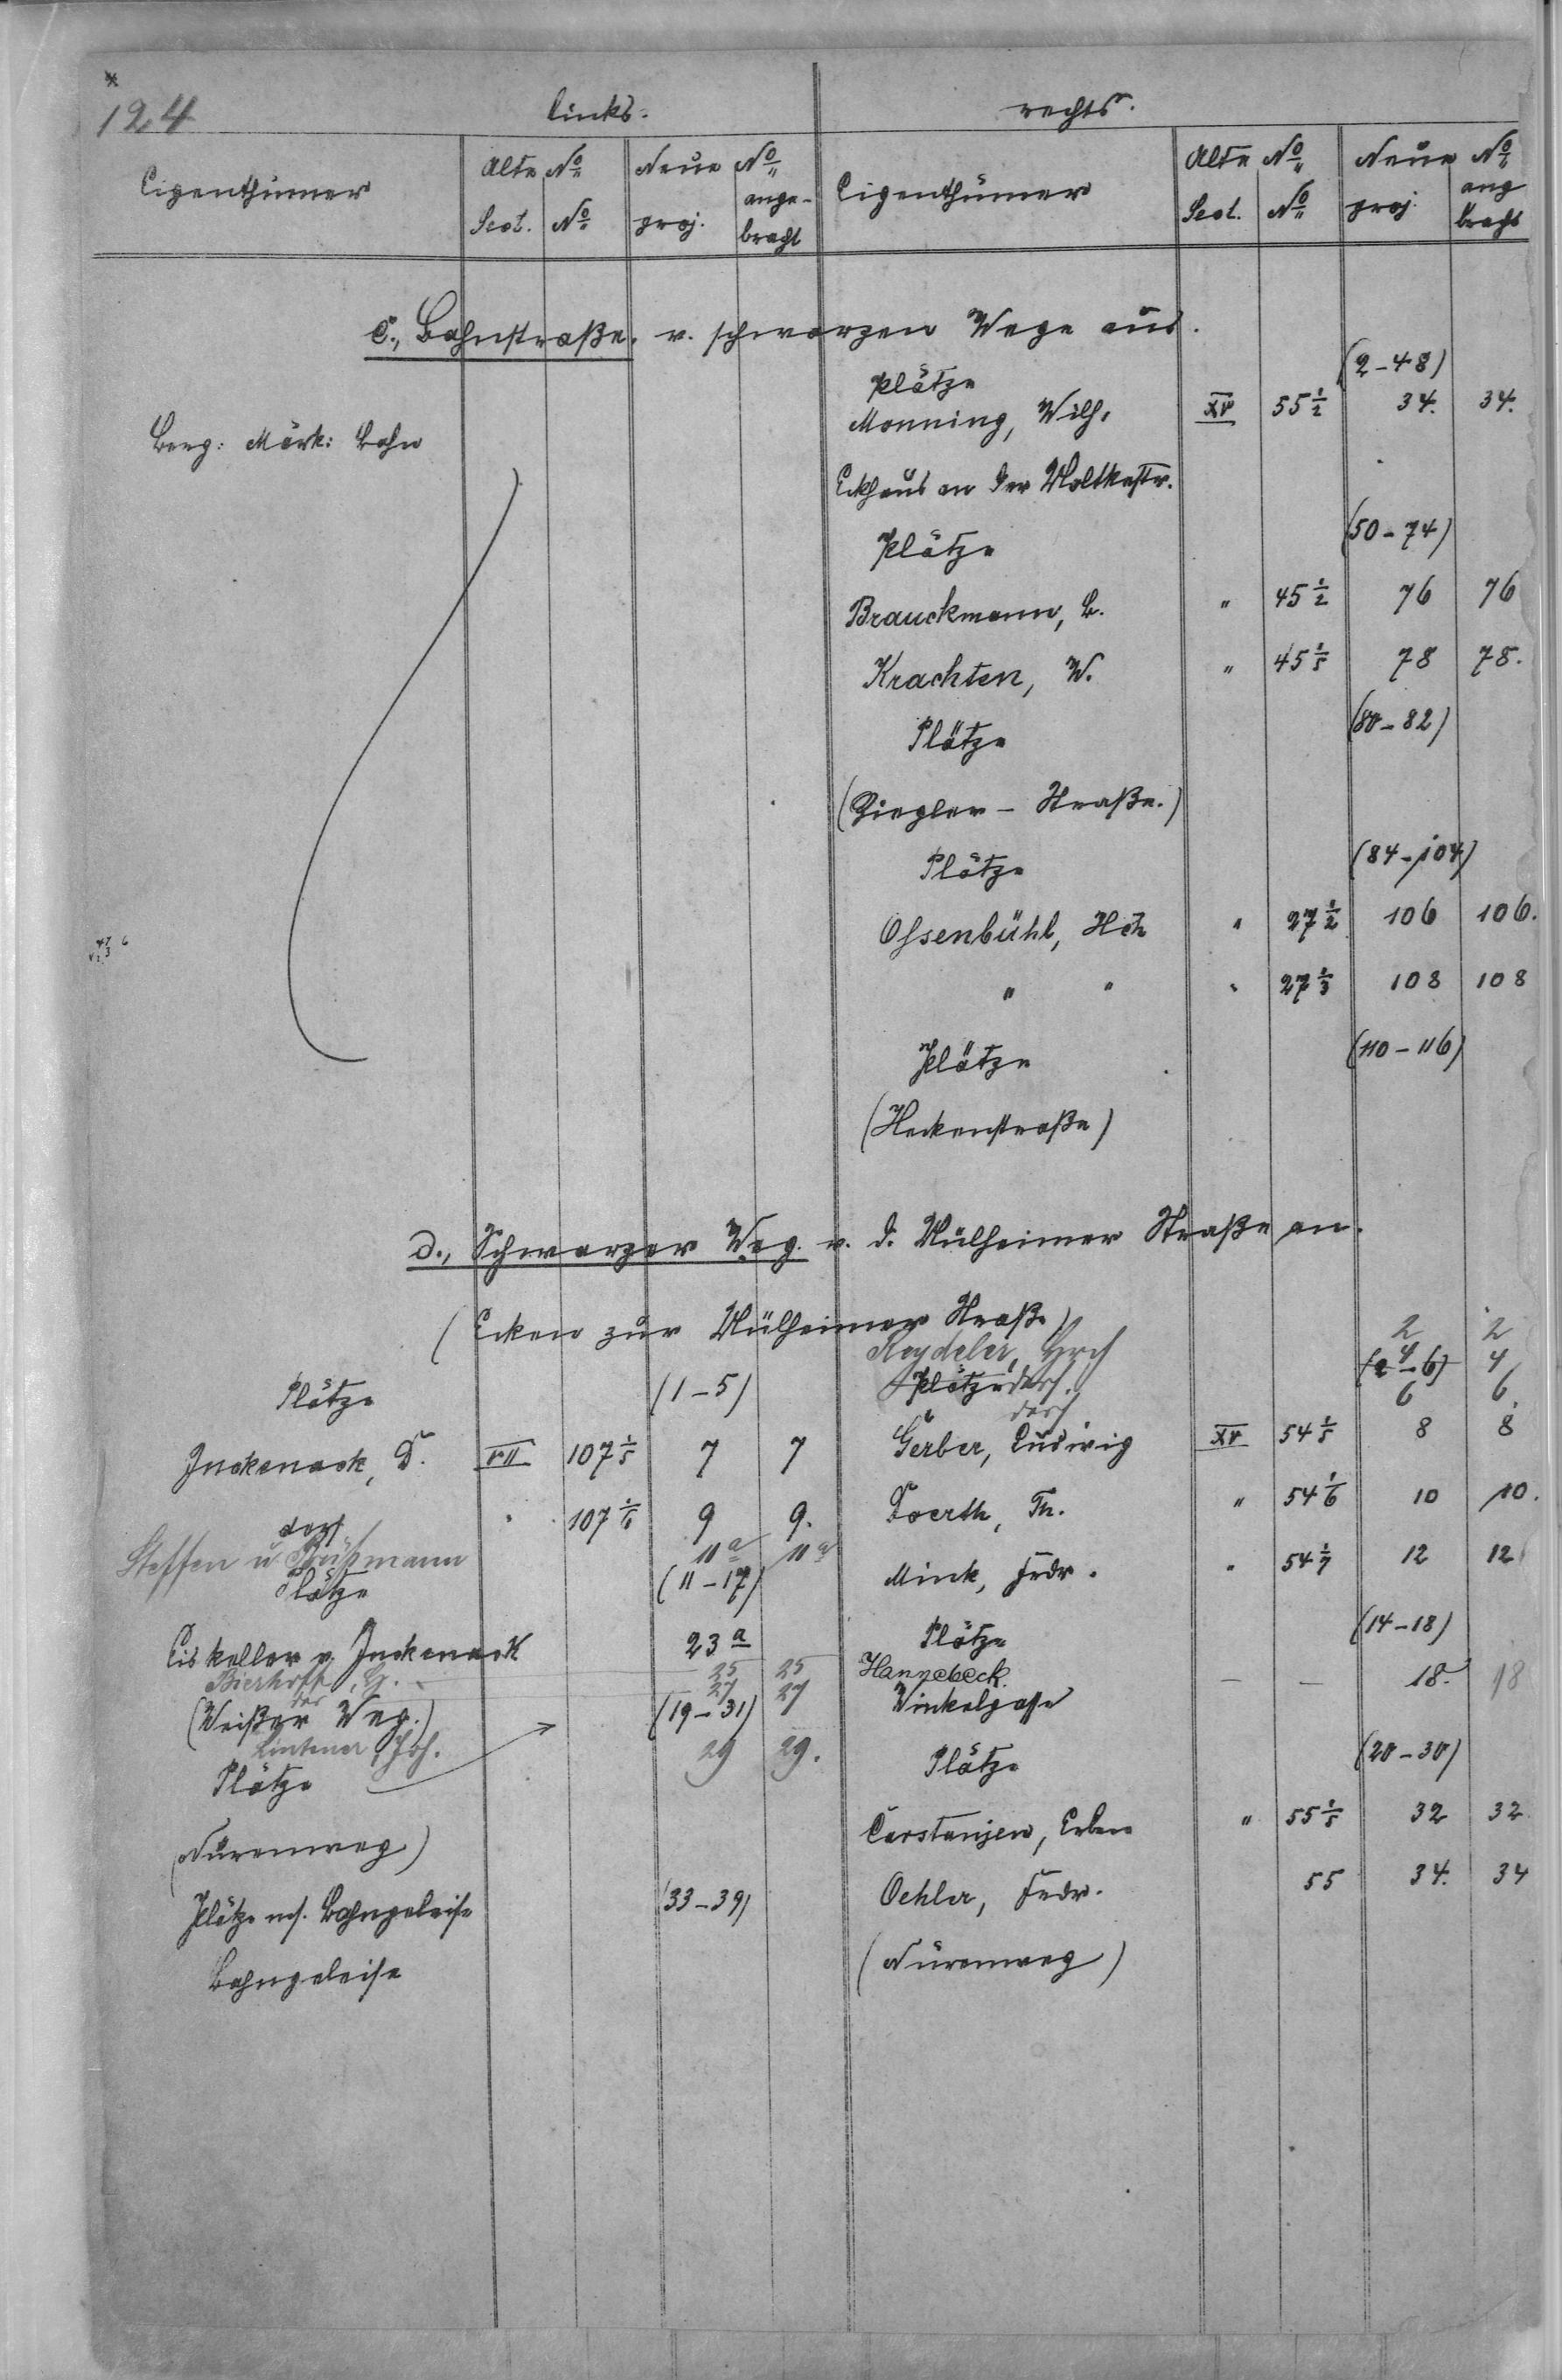 124
links.
rechts.
Eigenthümer
Alte No
Neue No
Sect. No proj. angebracht
Eigenthümer
Alte No
Neue No
Sect. No proj. angbracht
c., Bahnstraße. v. schwarzen Wege aus.
Plätze (2-48)
Berg: Märk: Bahn
Monning, Wilh. XV 55 1/2 34. 34.
Eckhaus an der Moltkestr.
Plätze (50-74)
Brauckmann, B. " 45 1/2 76 76
Krachten, W. " 45 1/5 78 78.
Plätze (80-82)
(Ziegler-Straße.)
Plätze (84-104)
Ossenbühl, Hch " 27 1/2 106 106.
" " " 27 1/3 108 108
Plätze (110-116)
(Heckenstraße)
d., Schwarzer Weg. v. d. Mülheimer Straße an.
(Ecken zur Mülheimer Straße)
Reydeler, Hrch 2 2
Plätze (1-5) Plätze ders. (2-6) 4 4
ders 6 6.
Inckenack, D. VII 107 1/5 7 7 Gerber, Ludwig XV 54 1/5 8 8
ders " 107 1/6 9 9. Foerth, Th. " 54 1/6 10 10.
Steffen u Bußmann 11a 11a
Plätze (11-17) Mink, Fedr. " 54 1/7 12 12
Eiskeller v. Inckenack 23a Plätze (14-18)
Bierhoff, H. 25 25 Hannebeck. — — 18. 18
der 27 27
(Weißer Weg.) (19-31) Winkelgasse
Lintener, Joh. 29 29.
Plätze Plätze (20-30)
(Nürenweg) Carstanjen, Erben " 55 1/5 32 32
Plätze u. Bahngeleise (33-39) Oehler, Fedr. 55 34. 34
Bahngeleise (Nürenweg)